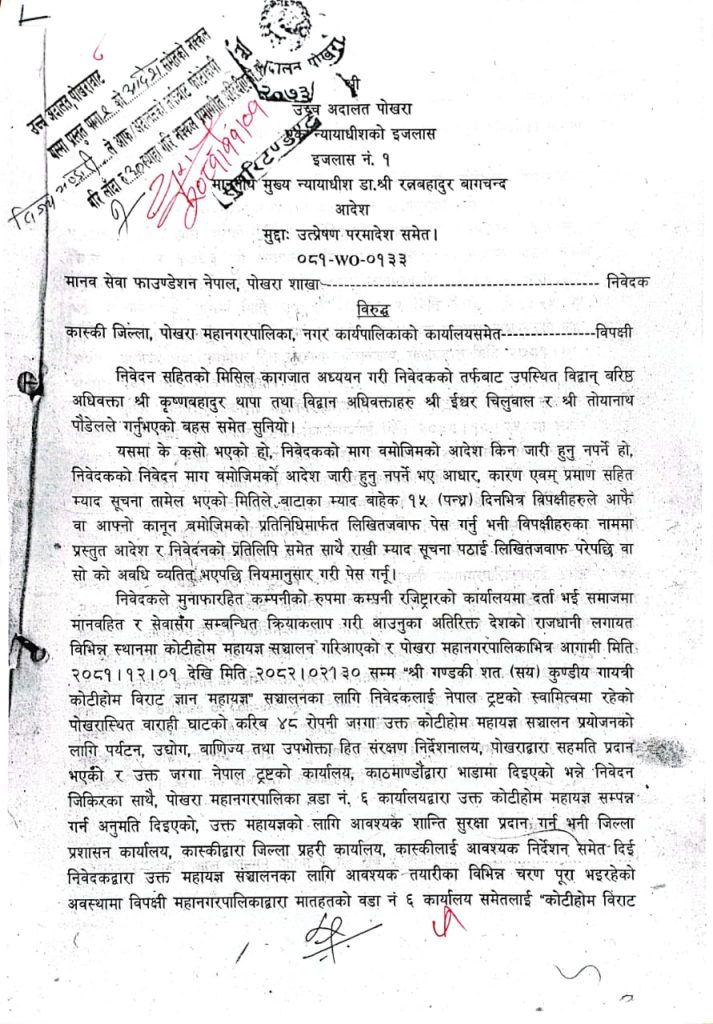 उच्च अदालत पोखरा
२०७३
श्री
उच्च अदालत पोखरा
एक न्यायाधीशको इजलास
इजलास नं. १
माननीय मुख्य न्यायाधीश डा.श्री रत्नबहादुर बागचन्द
आदेश
मुद्दाः उत्प्रेषण परमादेश समेत।
०८१-WO-०१३३
मानव सेवा फाउण्डेशन नेपाल, पोखरा शाखा------------------------------------ निवेदक
विरुद्ध
कास्की जिल्ला, पोखरा महानगरपालिका, नगर कार्यपालिकाको कार्यालयसमेत----------------विपक्षी
निवेदन सहितको मिसिल कागजात अध्ययन गरी निवेदकको तर्फबाट उपस्थित विद्वान् वरिष्ठ
अधिवक्ता श्री कृष्णबहादुर थापा तथा विद्वान अधिवक्ताहरु श्री ईश्वर चिलुवाल र श्री तोयानाथ
पौडेलले गर्नुभएको बहस समेत सुनियो।
यसमा के कसो भएको हो, निवेदकको माग बमोजिमको आदेश किन जारी हुनु नपर्ने हो,
निवेदकको निवेदन माग बमोजिमको आदेश जारी हुनु नपर्ने भए आधार, कारण एवम् प्रमाण सहित
म्याद सूचना तामेल भएको मितिले बाटाका म्याद बाहेक १५ (पन्ध्र) दिनभित्र विपक्षीहरुले आफै
वा आफ्नो कानून बमोजिमको प्रतिनिधिमार्फत लिखितजवाफ पेस गर्नु भनी विपक्षीहरुका नाममा
प्रस्तुत आदेश र निवेदनको प्रतिलिपि समेत साथै राखी म्याद सूचना पठाई लिखितजवाफ परेपछि वा
सो को अवधि व्यतित भएपछि नियमानुसार गरी पेस गर्नू।
निवेदकले मुनाफारहित कम्पनीको रुपमा कम्पनी रजिष्ट्रारको कार्यालयमा दर्ता भई समाजमा
मानवहित र सेवासँग सम्बन्धित क्रियाकलाप गरी आउनुका अतिरिक्त देशको राजधानी लगायत
विभिन्न स्थानमा कोटीहोम महायज्ञ सञ्चालन गरिआएको र पोखरा महानगरपालिकाभित्र आगामी मिति
२०८१।१२।०१ देखि मिति २०८२।०२।३० सम्म "श्री गण्डकी शत (सय) कुण्डीय गायत्री
कोटीहोम विराट ज्ञान महायज्ञ" सञ्चालनका लागि निवेदकलाई नेपाल ट्रष्टको स्वामित्वमा रहेको
पोखरास्थित वाराही घाटको करिब ४८ रोपनी जग्गा उक्त कोटीहोम महायज्ञ सञ्चालन प्रयोजनको
लागि पर्यटन, उद्योग, बाणिज्य तथा उपभोक्ता हित संरक्षण निर्देशनालय, पोखराद्वारा सहमति प्रदान
भएको र उक्त जग्गा नेपाल ट्रष्टको कार्यालय, काठमाण्डौद्वारा भाडामा दिइएको भन्ने निवेदन
जिकिरका साथै, पोखरा महानगरपालिका वडा नं. ६ कार्यालयद्वारा उक्त कोटीहोम महायज्ञ सम्पन्न
गर्न अनुमति दिइएको, उक्त महायज्ञको लागि आवश्यक शान्ति सुरक्षा प्रदान गर्न भनी जिल्ला
प्रशासन कार्यालय, कास्कीद्वारा जिल्ला प्रहरी कार्यालय, कास्कीलाई आवश्यक निर्देशन समेत दिई
निवेदकद्वारा उक्त महायज्ञ संञ्चालनका लागि आवश्यक तयारीका विभिन्न चरण पूरा भइरहेको
अवस्थामा विपक्षी महानगरपालिकाद्वारा मातहतको वडा नं ६ कार्यालय समेतलाई "कोटीहोम विराट